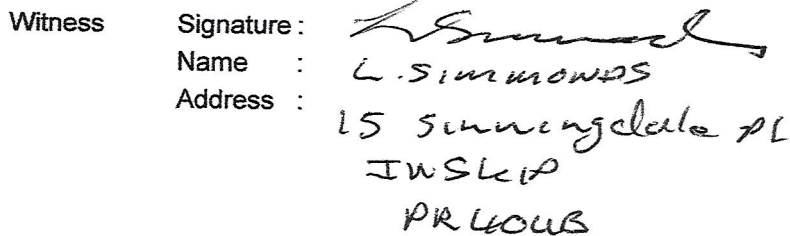 Witness Signature :
Name : L. SIMMONDS
Address :
15 Sunningdale PL
INSKIP
PR4 0UB